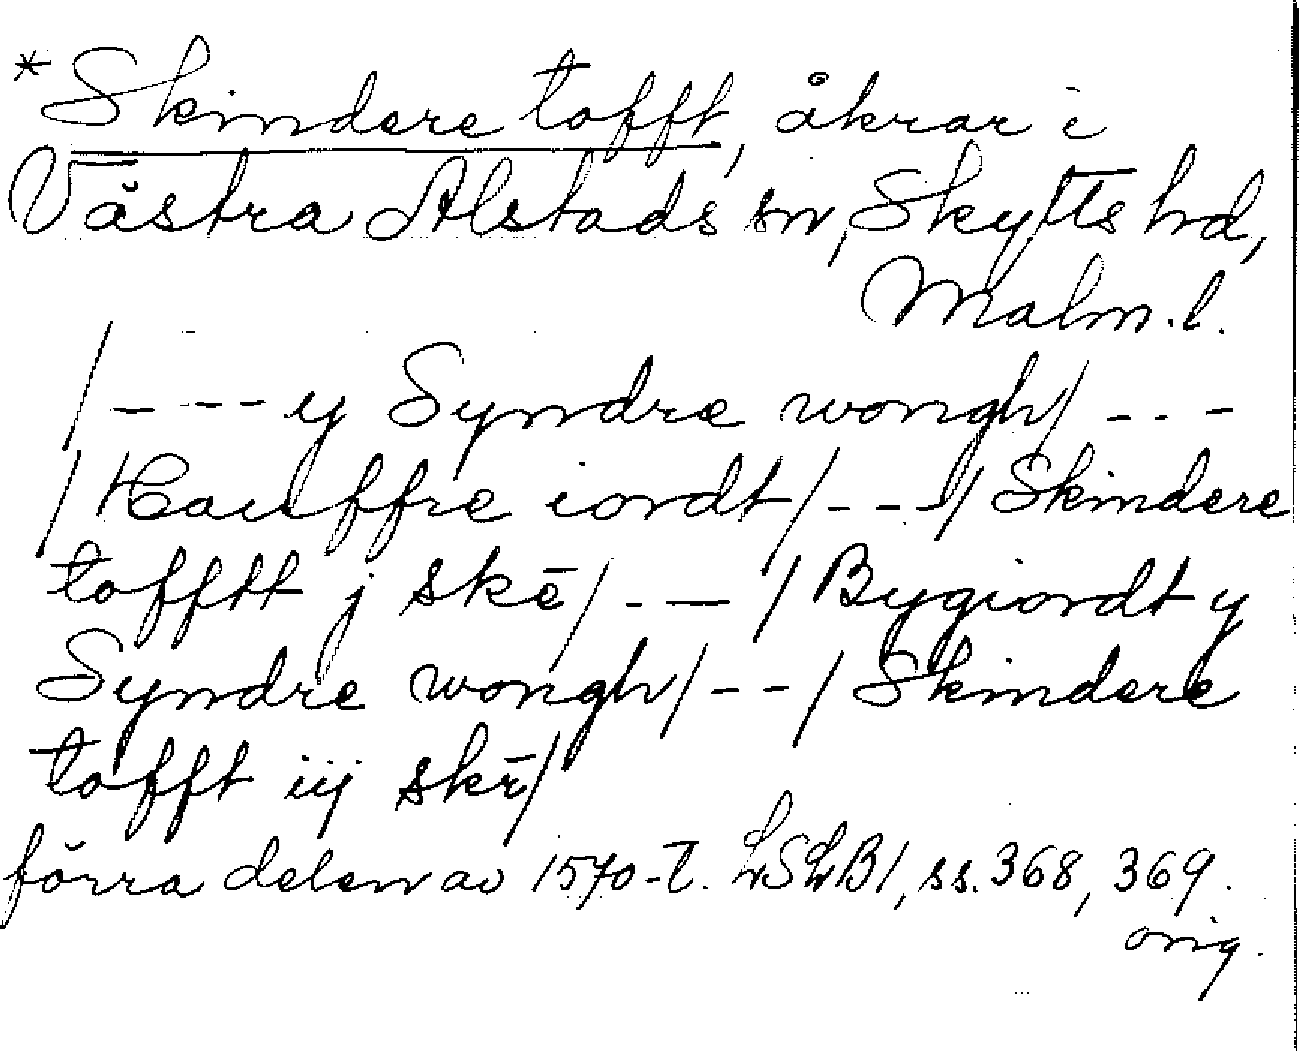 *Skindere tofft, åkrar i
Västra Alstads sn, Skytts hd,
Malm. l.
/---- y Syndre wongh/ ---
/Hauffre iordt/---/Skindere
tofftt j skē/ -- /Bygiordt y
Syndre wongh/--/Skindere
tofft iij skē/
förra delen av 1570-t. LSLB1, ss. 368, 369.
orig.